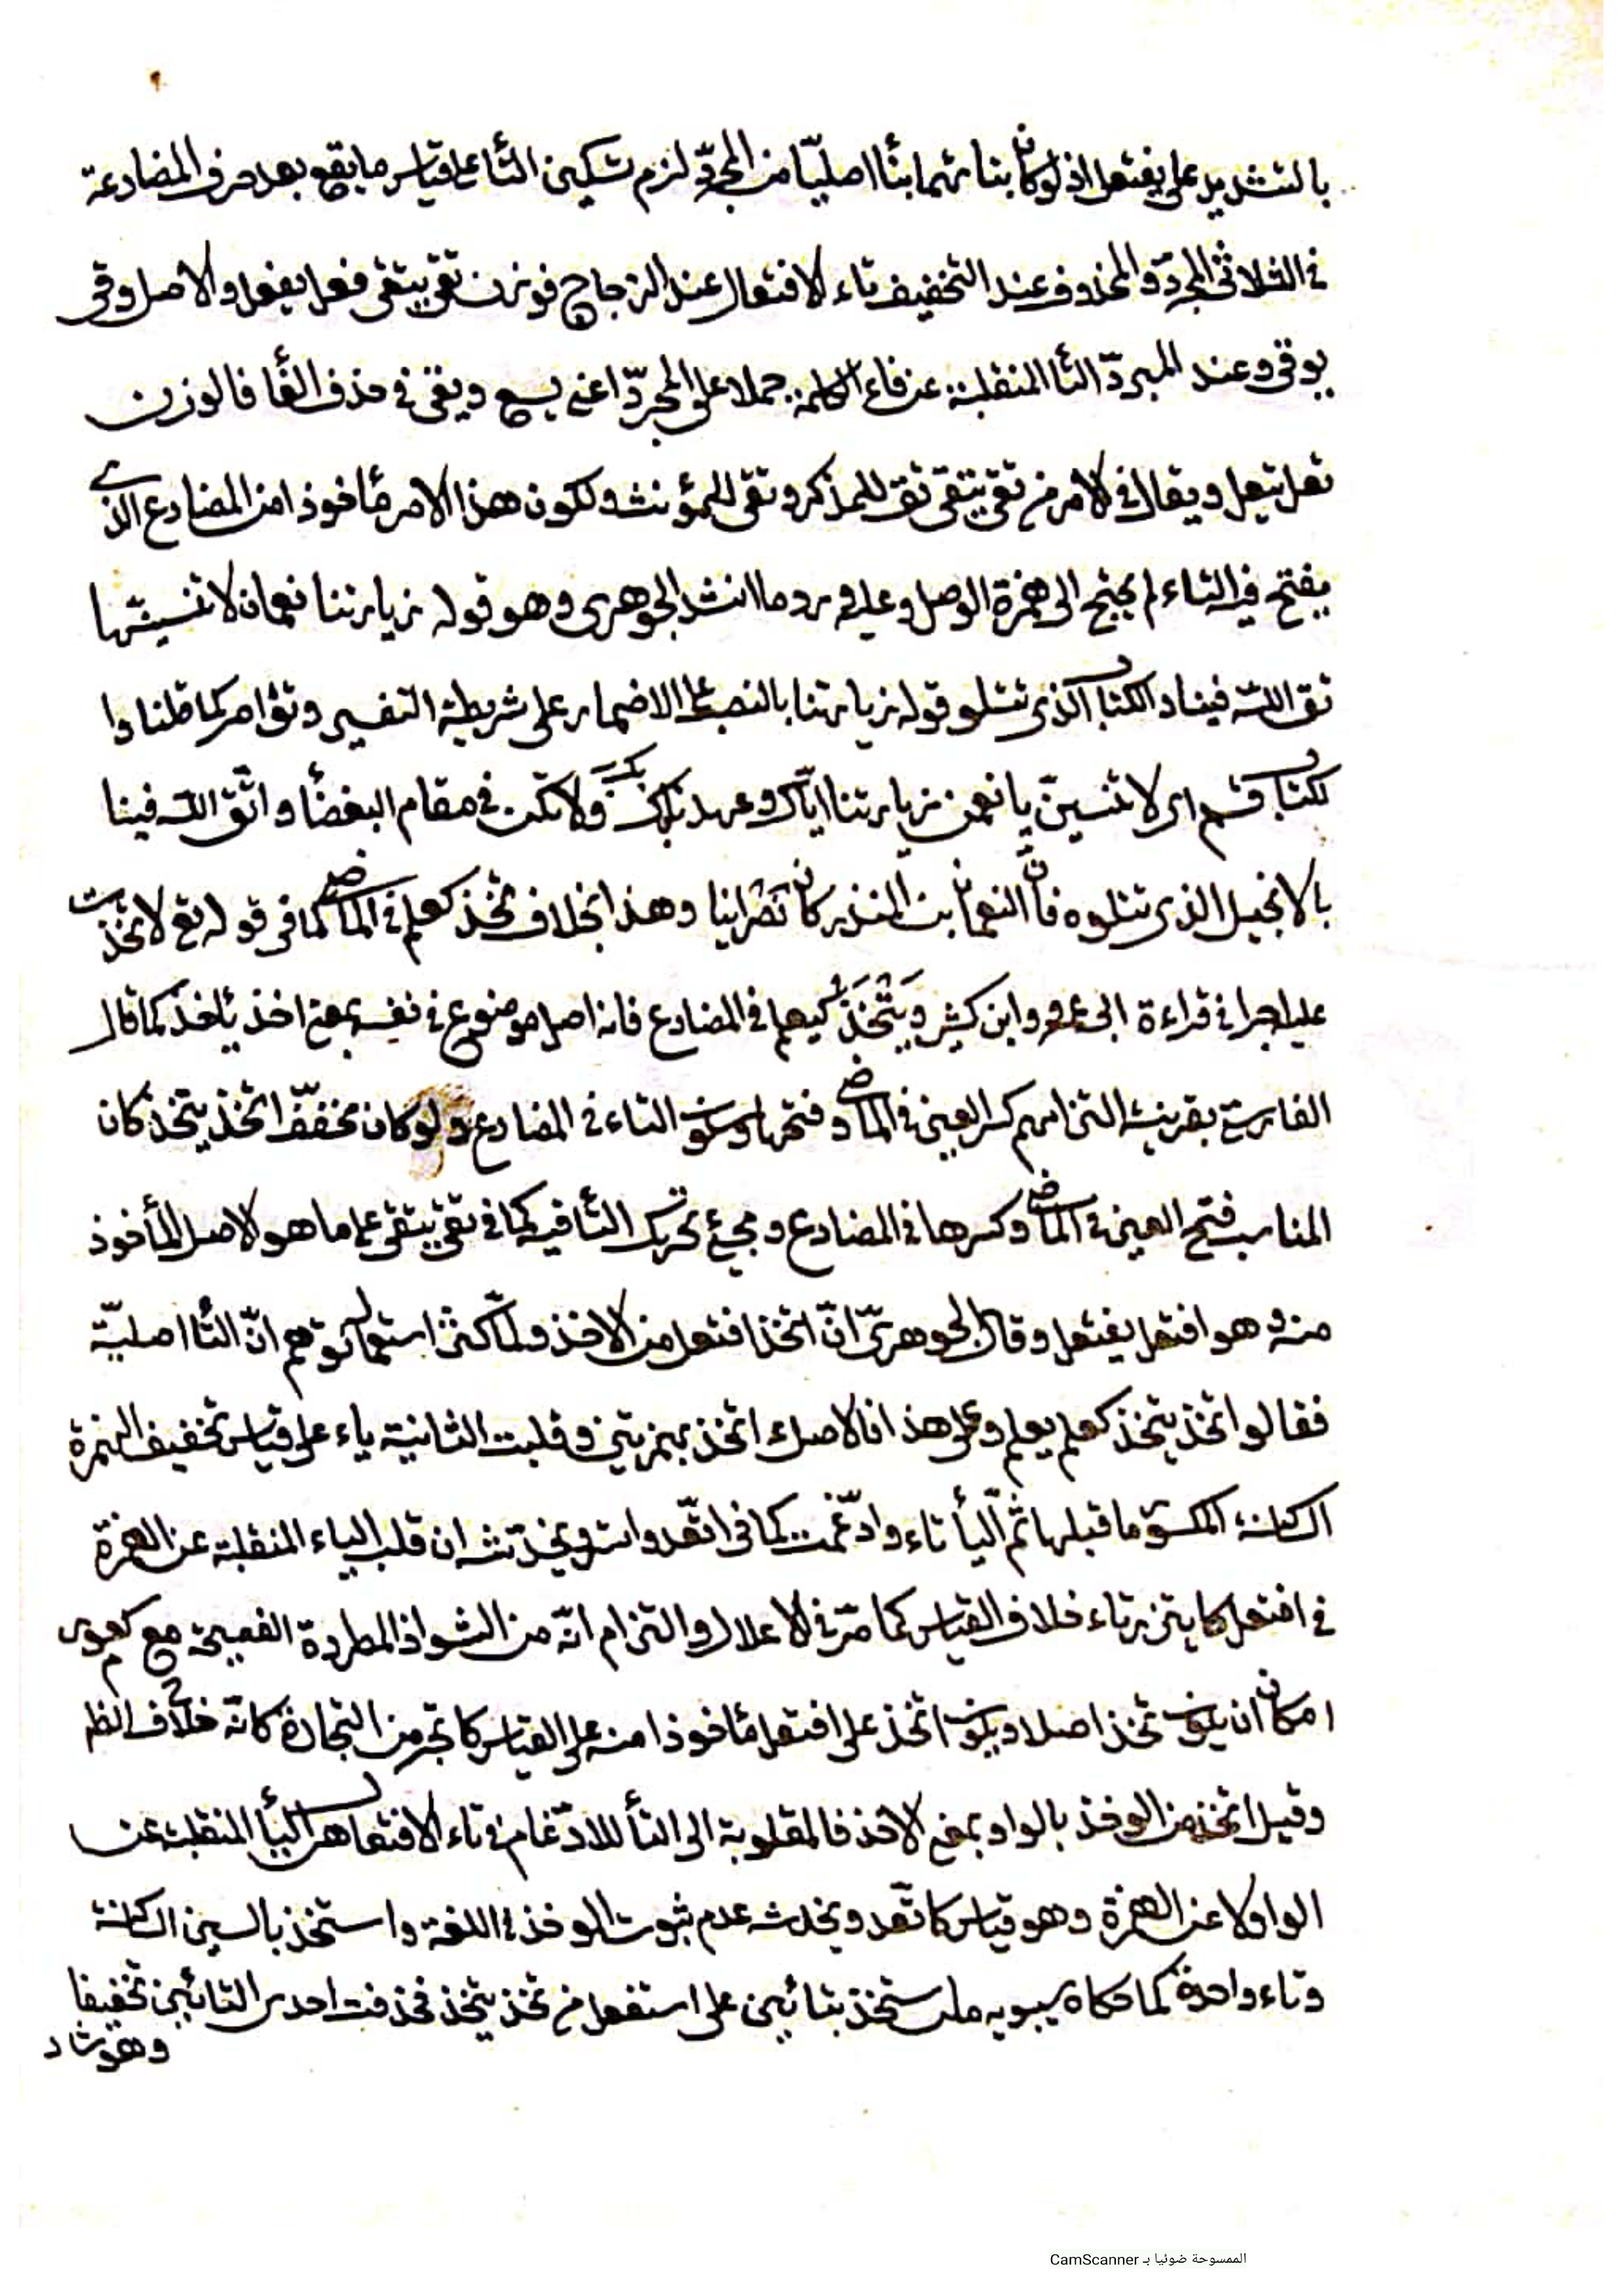 بالتشديد على يفتعل اذ لو كان بناؤهما بنأً اصليّا من المجرّد لزم تسكين التأ على قياس ما يقع بعد حرف المضارعة
في الثلاثي المجرّد والمحذوف عند التخفيف تاء الافتعال عند الزجاج فوزن تقى يتقى فعل يفعل والاصل وقى
يوقى وعند المبرّد التأ المنقلبة عن فاء الكلمة حملا على المجرّد اعني يسع ويقى في حذف الفأ فالوزن
تعل يتعل ويقال في الامر من تقى يتقى تق للمذكر وتقى للمؤنث ولكون هذا الامر مأخوذا من المضارع الذي
يفتح فيه التاء لم يحتج الى همزة الوصل وعليه ورد ما انشد الجوهرى وهو قوله زيارتنا نعمان لا تنسينّها
تق اللّه فينا والكتاب الذى تتلو قوله زيارتنا بالنصب على الاضمار على شريطة التفسير وتق امر كما قلنا وا
لكتاب قسم اى لا تنسينّ يا نعمن زيارتنا ايّاك وعهدنا بك ولا تكن في مقام البغضأ واتّق اللّه فينا
بالانجيل الذى تتلوه فانّ النعمان بن المنذر كان نصرانيا وهذا بخلاف تخذ كعلم في الماضي كما في قوله تع لاتخذت
عليه اجرا في قراءة ابى عمرو وابن كثير ويَتْخَذُ كيعلم في المضارع فانه اصل موضوع في نفسه بمعنى اخذ يأخذ كما قال
الفارسي بقرينة التزامهم كسر العين في الماضي وفتحها وسكون التاء في المضارع ولو كان مخفّف اتّخذ يتّخذ كان
المناسب فتح العين في الماضي وكسرها في المضارع ومجيء تحريك التأ فيه كما في تقى يتقى على ما هو الاصل المأخوذ
منه وهو افتعل يفتعل وقال الجوهرىّ انّ اتخذ افتعل من الاخذ ولمّا كثر استعماله توهم انّ التأ اصليّة
فقالوا تخذ يتخذ كعلم يعلم وعلى هذا فالاصل ءاتخذ بهمزتين وقلبت الثانية ياء على قياس تخفيف الهمزة
الساكنة المكسور ما قبلها ثم اليأ تاء وادّغمت كما في اتّعد واتسر ويخدشه ان قلب الياء المنقلبة عن الهمزة
في افتعل كايتزر تاء خلاف القياس كما مرّ في الاعلال والتزام انّه من الشواذ المطردة الفصيحة مع
امكان ان يكون تخذ اصلا ويكون اتخذ على افتعل مأخوذا منه على القياس كاتجر من التجارة كانّه خلاف الظ
وقيل اتخذ من الوخذ بالواو بمعنى الاخذ فالمقلوبة الى التأ للادّغام في تاء الافتعال هى اليأ المنقلبة عن
الواو لا عن الهمزة وهو قياس كاتّعد ويخدشه عدم ثبوت الوخذ في اللغة واستخذ بالسين الساكنة
وتاء واحدة كما حكاه سيبويه اصله استتخذ بتائين على استفعل من تخذ يتخذ فحذفت احدى التائين تخفيفا
وهو شاذ
الممسوحة ضوئيا بـ CamScanner